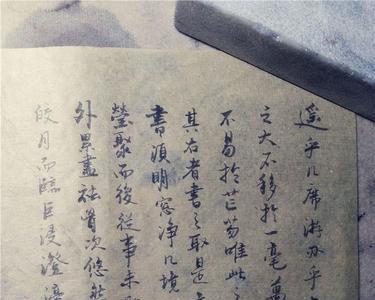 遥乎几席游办乎
之大不移於一毫萬
不易於芒芴唯此之
其右者書之取是
書須明窓净几境
瑩聚而後從事未
外累盡祛胷次悠然
皎月而臨巨浸澄